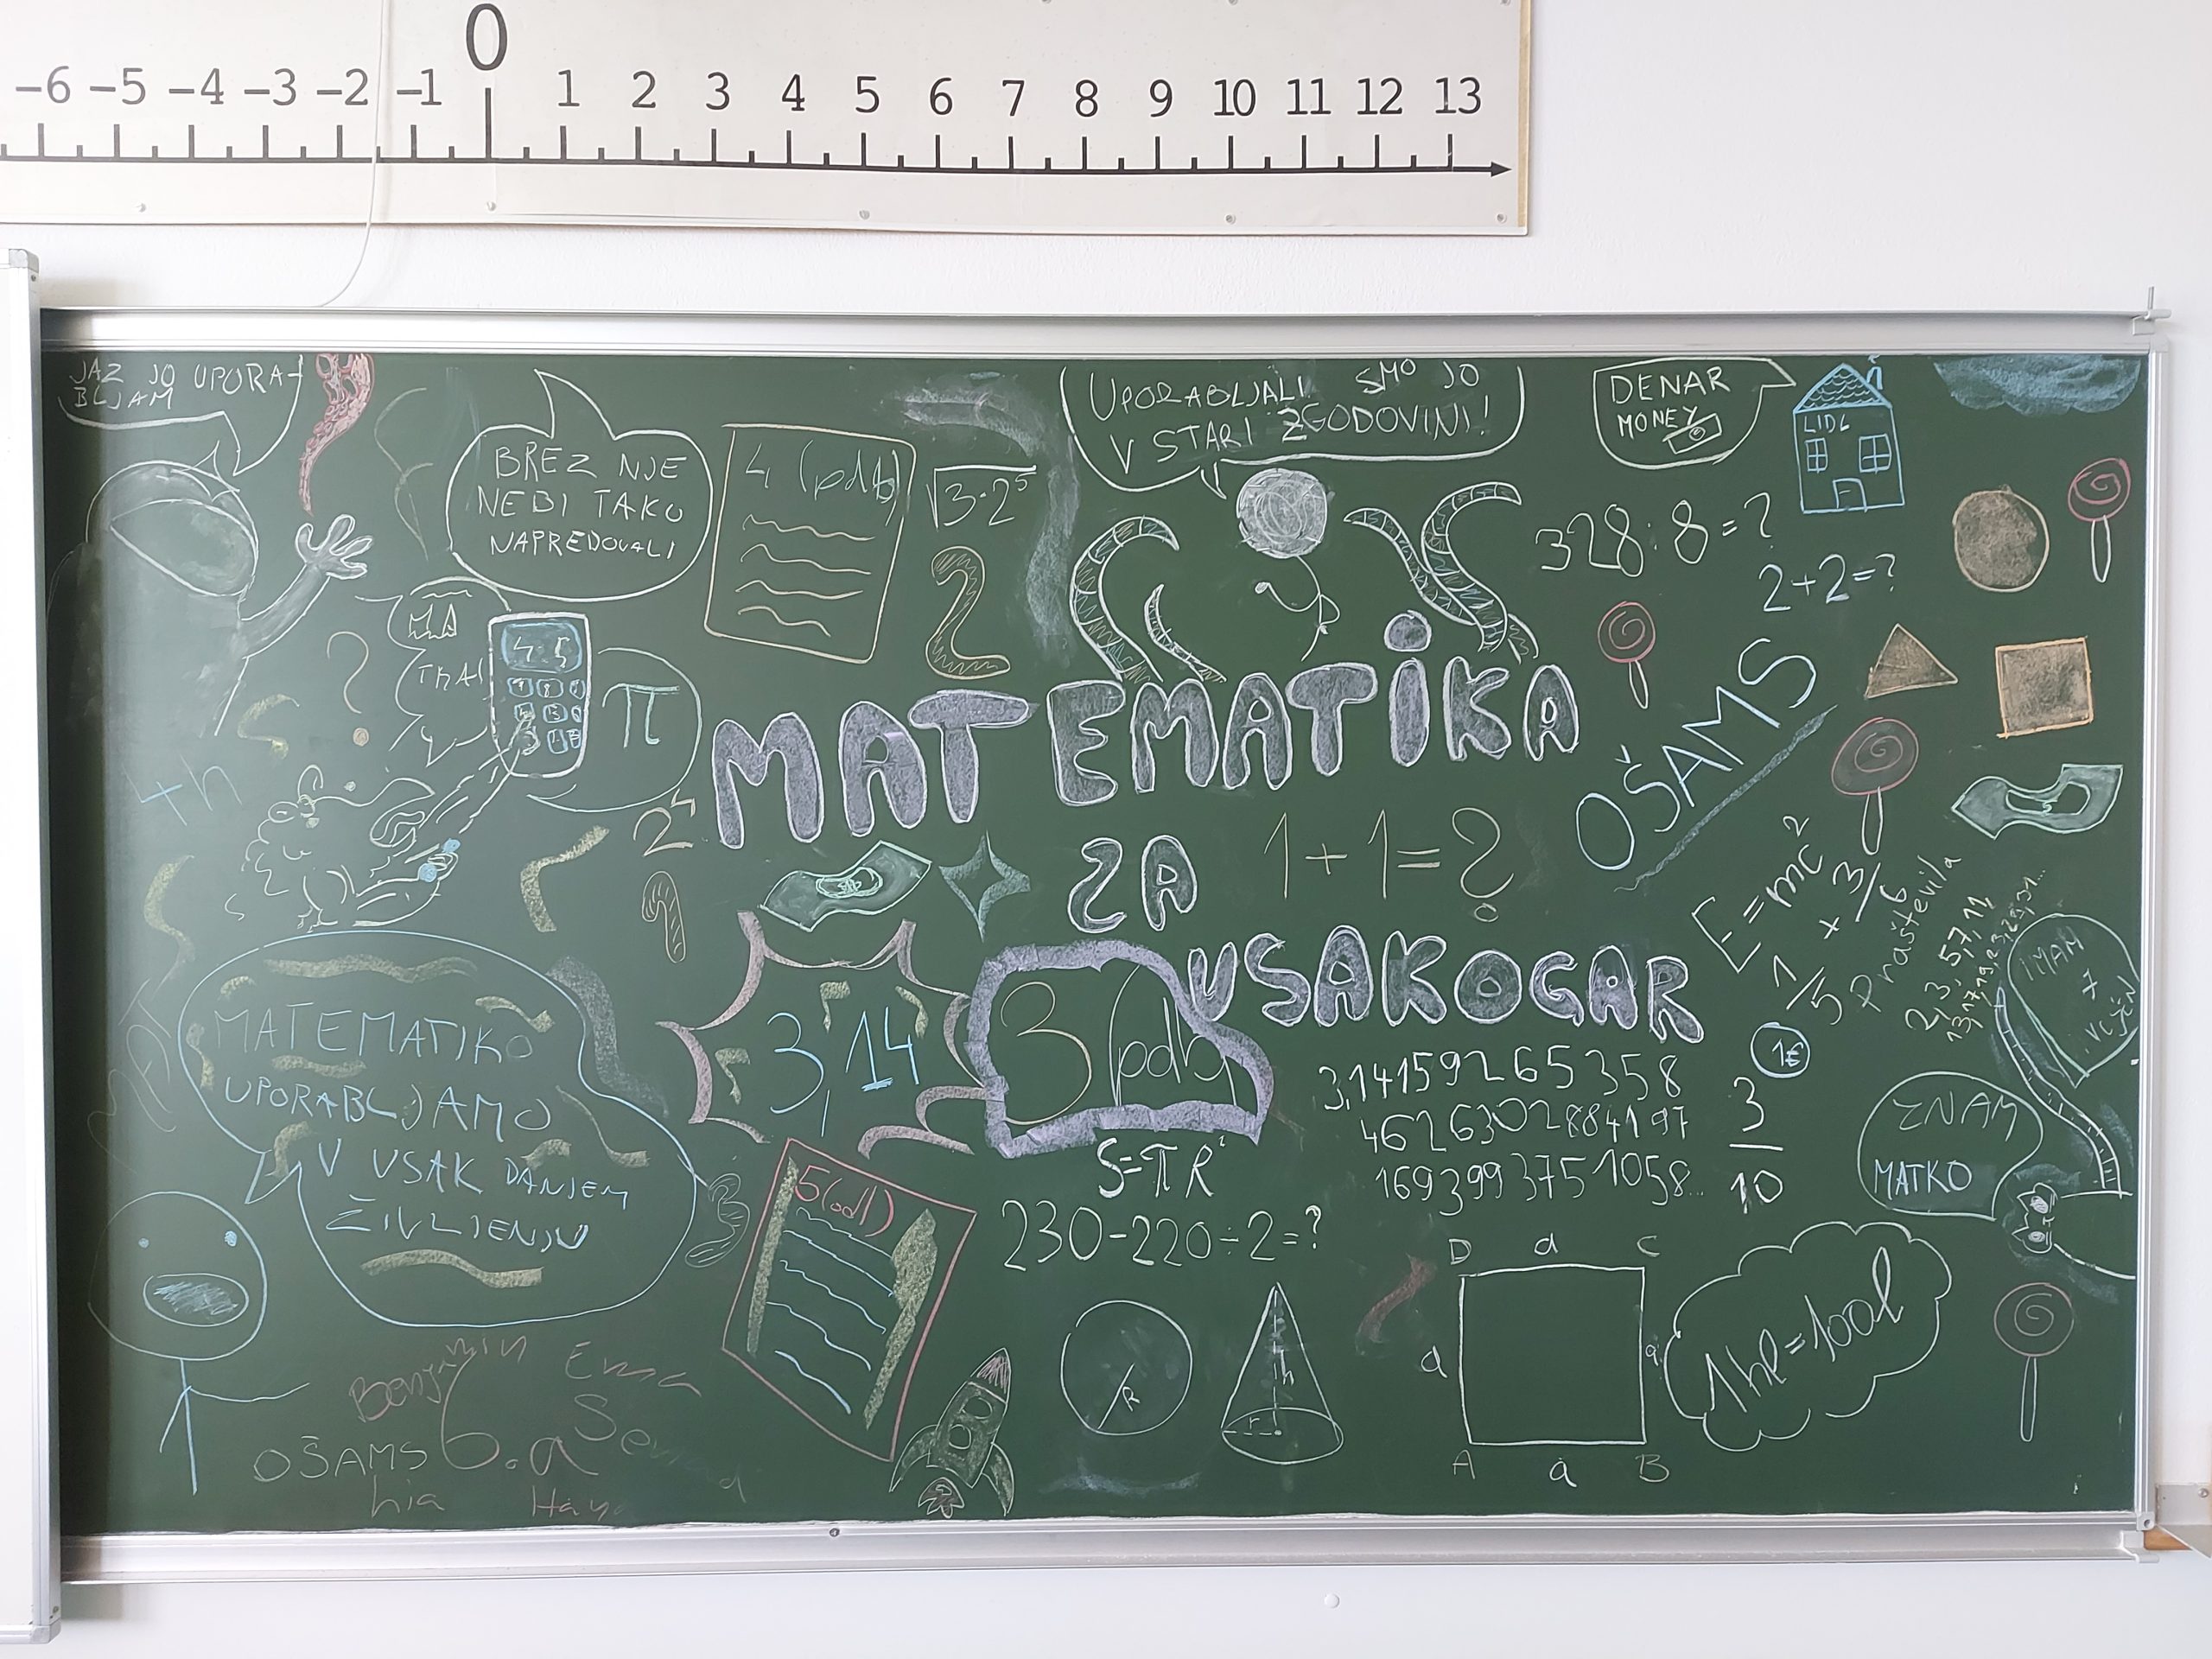 -6 -5 -4 -3 -2 -1 0 1 2 3 4 5 6 7 8 9 10 11 12 13
JAZ JO UPORA-
BLJAM
BREZ NJE
NEBI TAKO
NAPREDOVALI
4 (pdb)
√3·2⁵
UPORABLJALI SMO JO
V STARI ZGODOVINI!
DENAR
MONEY
LIDL
328:8=?
2+2=?
2
?
MA
THA!
4 5
π
MATEMATIKA
ZA
VSAKOGAR
OŠAMS
1+1=?
2⁴
1
E=mc²
1/5 × 3/6
Praštevila
2,3,5,7,11,
13,17,19,23,29,31...
IMAM
7
1€
MATEMATIKO
UPORABLJAMO
V VSAK DANJEM
ŽIVLJENJU
3,14
3 (pdb)
3,14159265358
4626302884197
1693993751058...
3
10
ZNAM
MATKO
S=πR²
230-220÷2=?
3
5(odl)
D a C
a a
A a B
R
h
r
1hl=100l
Benjamin Ema
OŠAMS 6.a